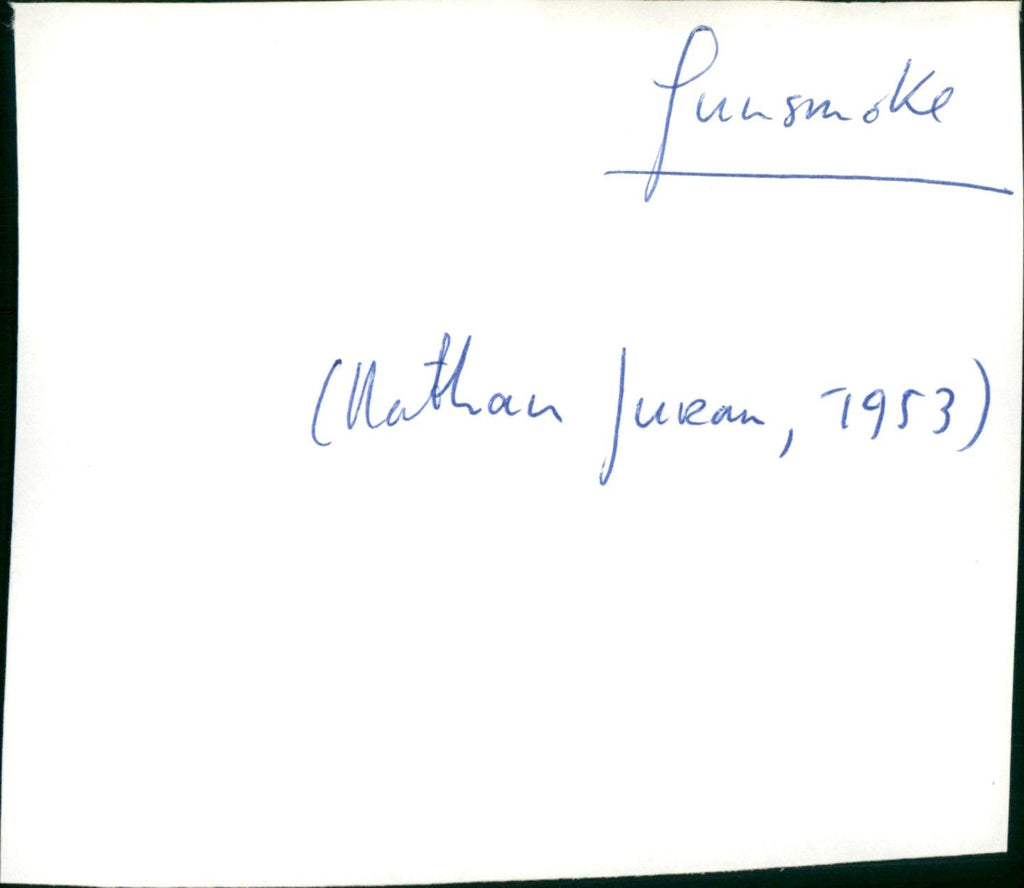 Gunsmoke
(Nathan Juran, 1953)